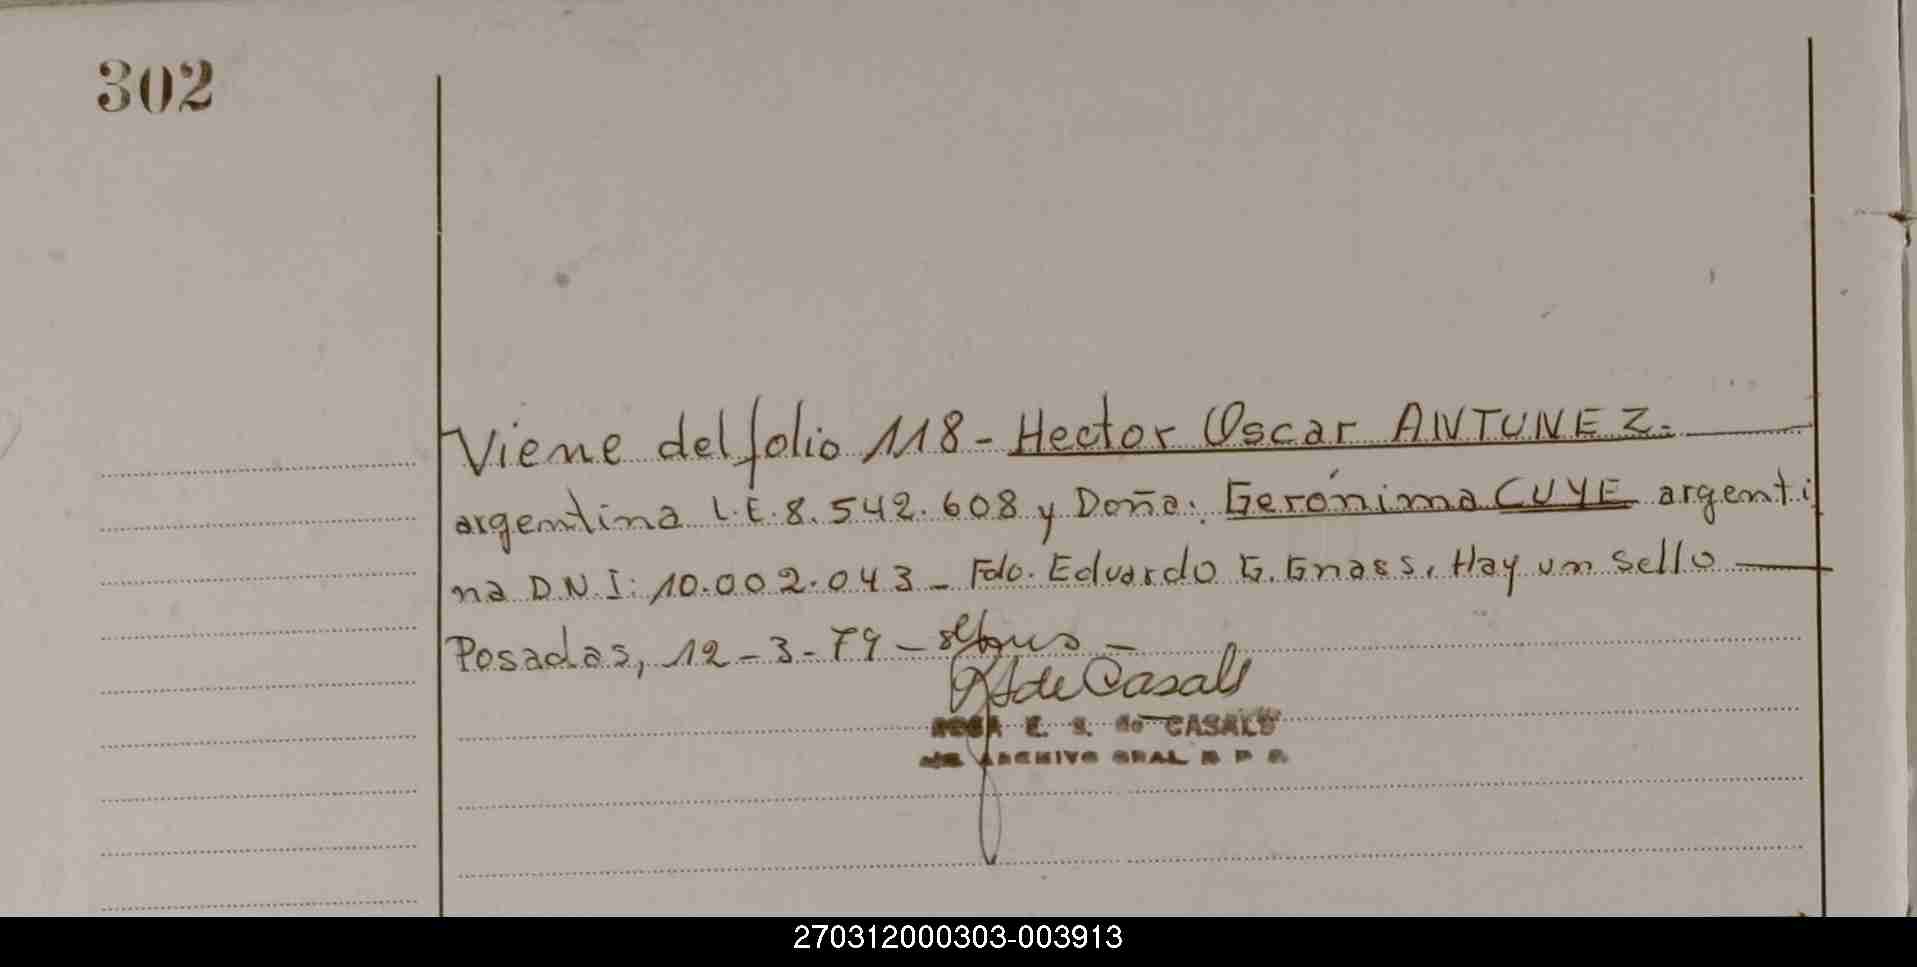 302
Viene del folio 118 - Hector Oscar ANTUNEZ.
argentina L.E. 8.542.608 y Doña: Gerónima CUYE argenti
na D.N.I: 10.002.043 - Fdo. Eduardo G. Gnass. Hay un sello
Posadas, 12-3-79 -
de Casals
ROSA E. S. de CASALS
ARCHIVO GRAL R P P
270312000303-003913